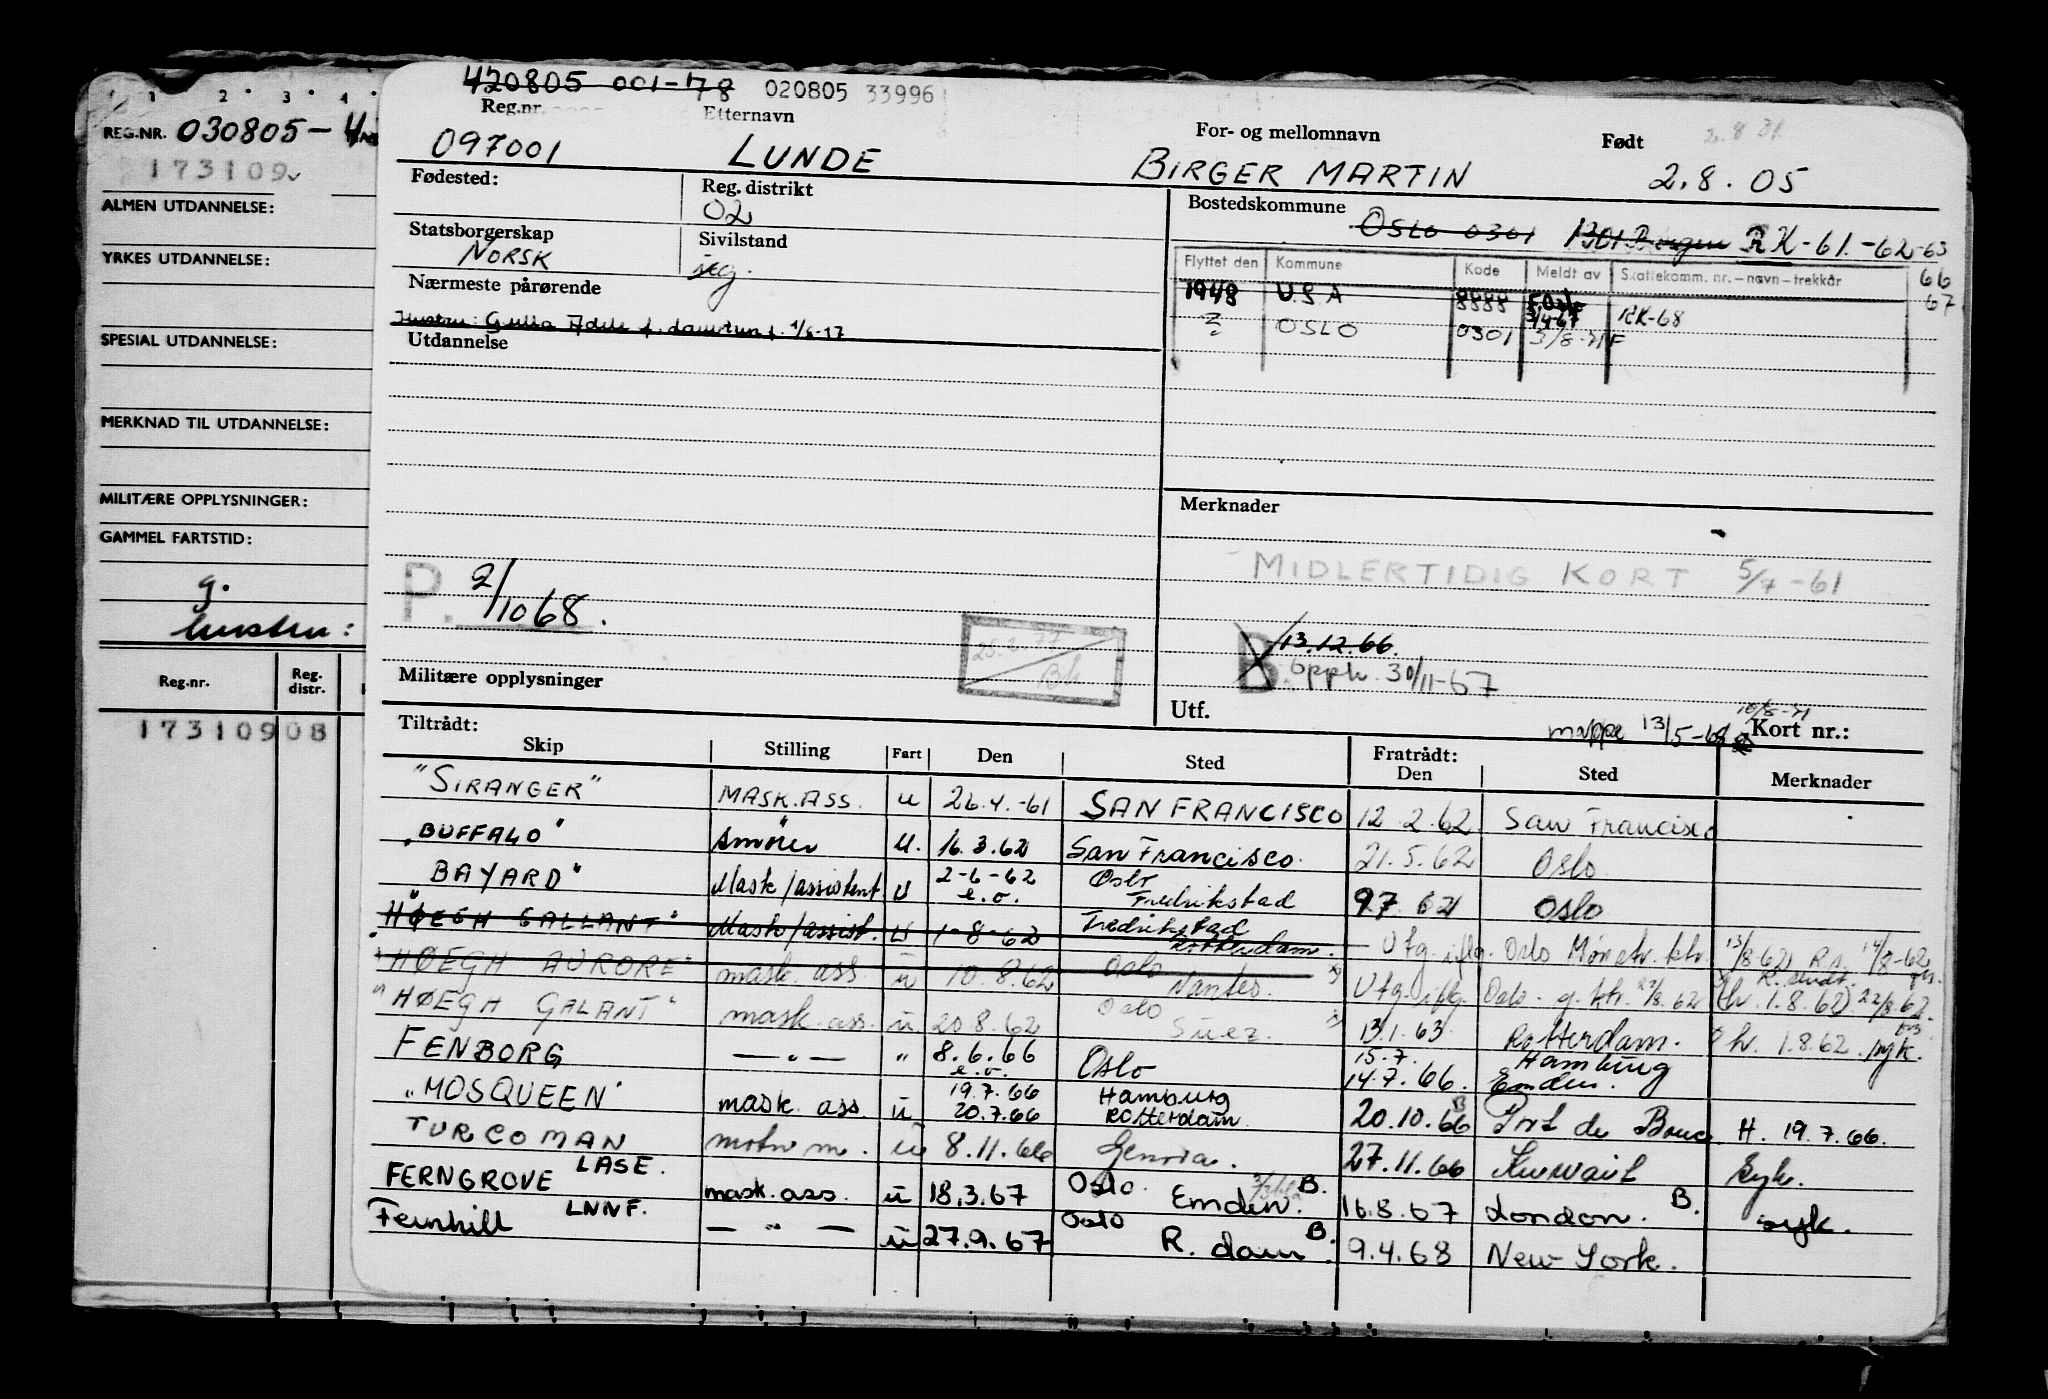 1 2 3 4
REG.NR. 030805-4
173109
ALMEN UTDANNELSE:
YRKES UTDANNELSE:
SPESIAL UTDANNELSE:
MERKNAD TIL UTDANNELSE:
MILITÆRE OPPLYSNINGER:
GAMMEL FARTSTID:
g.
hustru:
Reg.nr. Reg. distr.
173109 08
420805 001-78 020805 33996
Reg.nr. Etternavn For- og mellomnavn Født 2.8 31
097001 LUNDE BIRGER MARTIN 2.8.05
Fødested: Reg. distrikt Bostedskommune
02 Oslo 0301 1301 Bergen RK-61.-62-63
66
67
Statsborgerskap Sivilstand
NORSK ug.
Flyttet den Kommune Kode Meldt av Skattekomm. nr.-navn-trekkår
1948 USA 8888 3/4-67 RK-68
? OSLO 0301 3/8-71 F
Nærmeste pårørende
Hustru: Gulla Adele f. 1/8-17
Utdannelse
Merknader
MIDLERTIDIG KORT 5/7-61
P. 2/10 68.
25.2.77
B. 13.12.66.
Opph. 30/11-67
Militære opplysninger
Utf. mappe 13/5-68 10/8-71 Kort nr.:
Tiltrådt: Fratrådt:
Skip Stilling Fart Den Sted Den Sted Merknader
"SIRANGER" MASK.ASS. u 26.4.-61 SAN FRANCISCO 12.2.62 San Francisco
"BUFFALO" Smører U. 16.3.62 San Francisco. 21.5.62 Oslo
BAYARD" Mask/assistent U 2-6-62 e.o. Oslo Fredrikstad 9 7 62 Oslo
"HØEGH GALLANT" Mask/assist. U 1-8-62 Fredrikstad Rotterdam. Utg. iflg. Oslo Mønstr. ktr. 13/8 62 14/8-62
"HØEGH AURORE" mask. ass u 10.8.62 Oslo Nantes. Utg. iflg. Oslo (hv. 1.8.62) 22/8 62.
"HØEGH GALANT" mask. ass. u 20.8.62 Oslo Suez. 13.1.63 Rotterdam. hv. 1.8.62. syk.
FENBORG — " — " 8.6.66 e.o. Oslo 15.7. 14.7.66. Hamburg Emden.
"MOSQUEEN" mask. ass. u 19.7.66 20.7.66 Hamburg Rotterdam. 20.10.66 B Port de Bouc H. 19.7.66.
TURCOMAN motor m. u 8.11.66 Genova. 27.11.66 Kuwait Syk.
FERNGROVE LASE. mask.ass. u 18.3.67 Oslo. Emden. B. 16.8.67 London. B. syk.
Fernhill LNNF. — " — u 27.9.67 Oslo R. dam B. 9.4.68 New York.